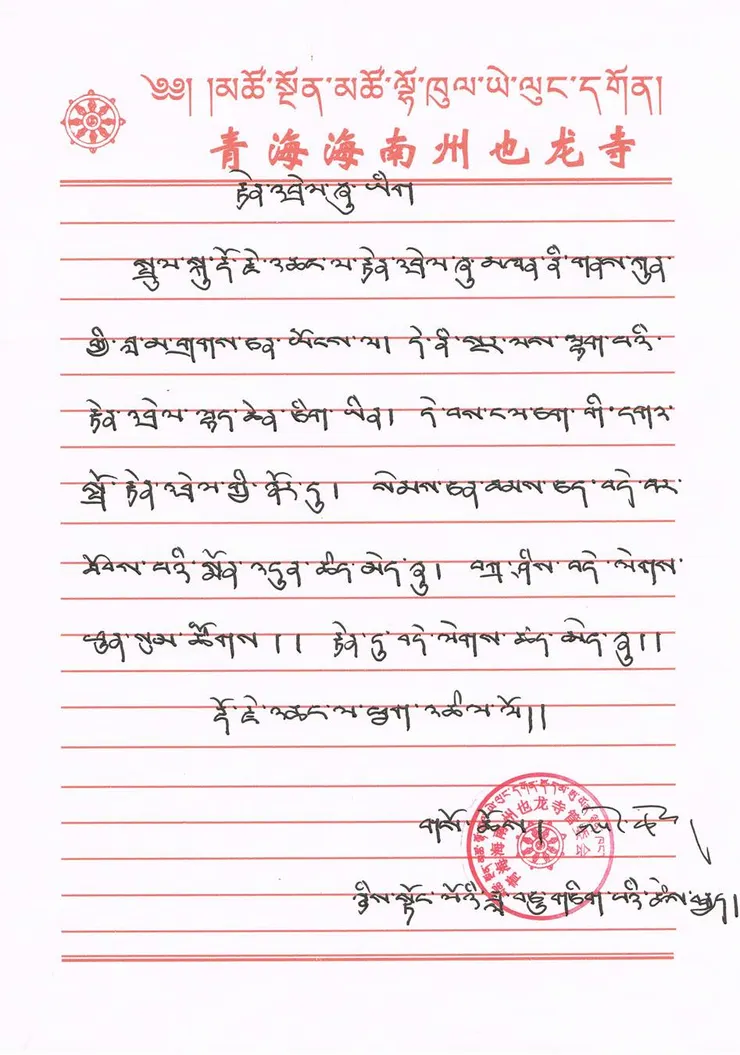 ༄༅། །མཚོ་སྔོན་མཚོ་ལྷོ་ཁུལ་ཡེ་ལུང་དགོན།
青海海南州也龙寺
རྟེན་འབྲེལ་ཞུ་ཡིག
སྤྲུལ་སྐུ་རྡོ་རྗེ་འཆང་ལ་རྟེན་འབྲེལ་ཞུ་མཁན་ནི་གནས་ཀུན་
གྱི་བླ་མ་གྲགས་ཅན་ཡོངས་ལ། དེ་ནི་སྔར་ལས་ལྷག་པའི་
རྟེན་འབྲེལ་ཁྱད་ཆེན་ཅིག་ཡིན། དེ་བས་ང་ལ་ཅག་གི་དགའ་
སྤྲོ་རྟེན་འབྲེལ་གྱི་ངོར་དུ། སེམས་ཅན་ཐམས་ཅད་བདེ་བར་
ཐོབས་པའི་སྨོན་འདུན་ཚད་མེད་ཞུ། བཀྲ་ཤིས་བདེ་ལེགས་
ཕུན་སུམ་ཚོགས།། རྟེན་དུ་བདེ་ལེགས་ཚད་མེད་ཞུ།།
རྡོ་རྗེ་འཆང་ལ་ཕྱག་འཚལ་ལོ།།
གསོ་ཚོས།
青海海南州也龙寺管委会
ཉིས་སྟོང་ལོའི་ཟླ་བཅུ་གཅིག་པའི་ཚེས་